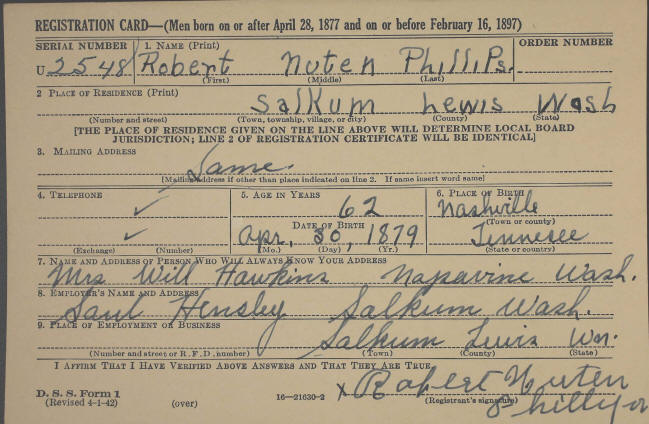 REGISTRATION CARD—(Men born on or after April 28, 1877 and on or before February 16, 1897)
SERIAL NUMBER 1. NAME (Print) ORDER NUMBER
U 2548 Robert Nuten Phillips.
(First) (Middle) (Last)
2 PLACE OF RESIDENCE (Print)
Salkum Lewis Wash
(Number and street) (Town, township, village, or city) (County) (State)
[THE PLACE OF RESIDENCE GIVEN ON THE LINE ABOVE WILL DETERMINE LOCAL BOARD
JURISDICTION; LINE 2 OF REGISTRATION CERTIFICATE WILL BE IDENTICAL]
3. MAILING ADDRESS
Same.
[Mailing address if other than place indicated on line 2. If same insert word same]
4. TELEPHONE 5. AGE IN YEARS 6. PLACE OF BIRTH
✓ 62 Nashville
DATE OF BIRTH (Town or county)
✓ Apr. 30, 1879 Tennesee
(Exchange) (Number) (Mo.) (Day) (Yr.) (State or country)
7. NAME AND ADDRESS OF PERSON WHO WILL ALWAYS KNOW YOUR ADDRESS
Mrs Will Hawkins Napavine Wash.
8. EMPLOYER'S NAME AND ADDRESS
Saul Hensby Salkum Wash.
9. PLACE OF EMPLOYMENT OR BUSINESS
Salkum Lewis Wn.
(Number and street or R. F. D. number) (Town) (County) (State)
I AFFIRM THAT I HAVE VERIFIED ABOVE ANSWERS AND THAT THEY ARE TRUE.
D. S. S. Form 1 X Robert Nuten
(Revised 4-1-42) (over) 16—21630-2 (Registrant's signature)